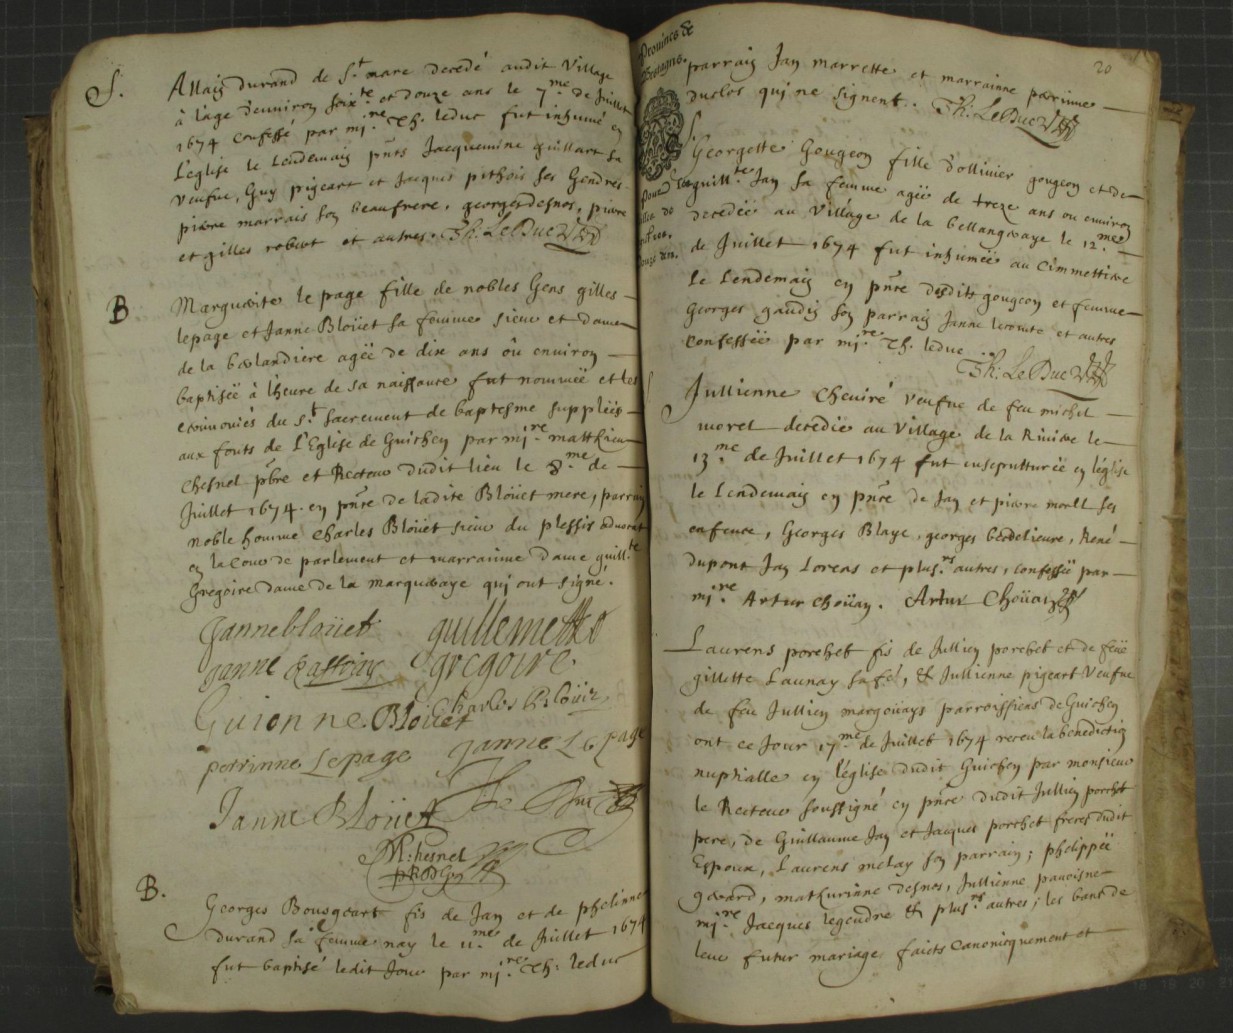 S.
Allain durand de S.t mare decedé audit Village
à l'age d'environ soix.te et douze ans le 7.me de Juillet
1674 confessé par mi.re Th. leduc fut inhumé en
L'eglise le Lendemain pnts Jacquemine guillart sa
veufue, Guy pigeart et Jacques pithois ses Gendres
pierre marrais son beaufrere, georges desnos, pierre
et gilles robert et autres. Th. Le Duc
B
Marguerite le page fille de nobles Gens gilles
lepage et Janne Bloüet sa femme sieur et dame
de la agëe de dix ans oû environ
baptisëe à l'heure de sa naissance fut nommëe et les
ceremonies du S.t Sacrement de baptesme supplëes
aux fonts de L'Eglise de Guichen par mi.re matthieu
Chesnel pbre et Recteur dudit lieu le 8.me de
Juillet 1674. en pnce de ladite Blöuet mere, parrain
noble homme Charles Bloüet sieur du plessix aduocat
en la Cour de parlement et marraine dame guill.te
Gregoire dame de la qui ont signé.
Janne bloüet guillemette
janne gregoire.
Guionne Bloüet Charles Bloüet
perrinne Lepage Janne Le page
Janne Bloüet
M: chesnel
B.
Georges Bourgeart fis de Jan et de phelinne
durand sa femme nay le 11.me de Juillet 1674
fut baptisé ledit Jour par mi.re Th: leduc
20
parrain Jan marrette et marrainne perinne
duclos qui ne signent. Th. Le Duc
S.
Georgette Gougeon fille d'ollivier gougeon et de
guill.te Jan sa femme agëe de treze ans ou environ
decedëe au Village de la le 12.me
de Juillet 1674 fut inhumëe au Cimmettire
le Lendemain en pnce desdits gougeon et femme
Georges gaudin son parrain Janne lecomte et autres
Confessëe par mi.re Th. leduc
Th: Le Duc
Jullienne Cheuiré Veufue de feu michel
morel decedëe au Village de la Riuiere le
13.me de Juillet 1674 fut en l'église
le Lendemain en pnce de Jan et pierre morell ses
enfents, Georges Blaye, georges , René
dupont Jan Loreas et plus.rs autres, confessëe par
mi.re Artur Choüan. Artur Choüan
Laurens porchet fis de Jullien porchet et de feüe
gillette Launay sa fe, & Jullienne pigeart Veufue
de feu Jullien margouays parroissiens de Guichen
ont ce Jour 17.me de Juillet 1674 receu la benediction
nuptialle en l'église dudit Guichen par monsieur
le Recteur soussigné en pnce dudit Jullien porchet
pere, de Guillaume Jan et Jacques porchet freres dudit
Espoux, Laurens melay son parrain; phelippë
, mathurinne desnos, Jullienne
mi.re Jacques legendre & plus.rs autres; les bans de
leur futur mariage faicts Canonicquement et